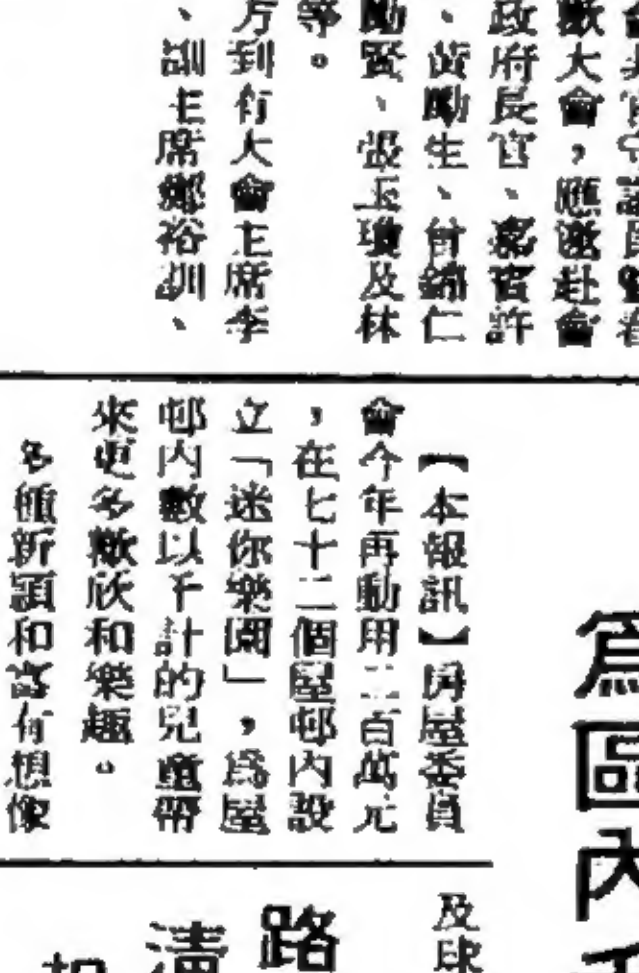 歡大會，應邀赴會
政府長官、嘉賓許
、黃勵生、曾錦仁
勵賢、張玉瓊及林
等。
方到有大會主席李
、副主席鄭裕訓、
爲區內
【本報訊】房屋委員
會今年再動用二百萬元
，在七十二個屋邨內設
立「迷你樂園」，爲屋
邨內數以千計的兒童帶
來更多歡欣和樂趣。
多種新穎和富有想像
及球
路